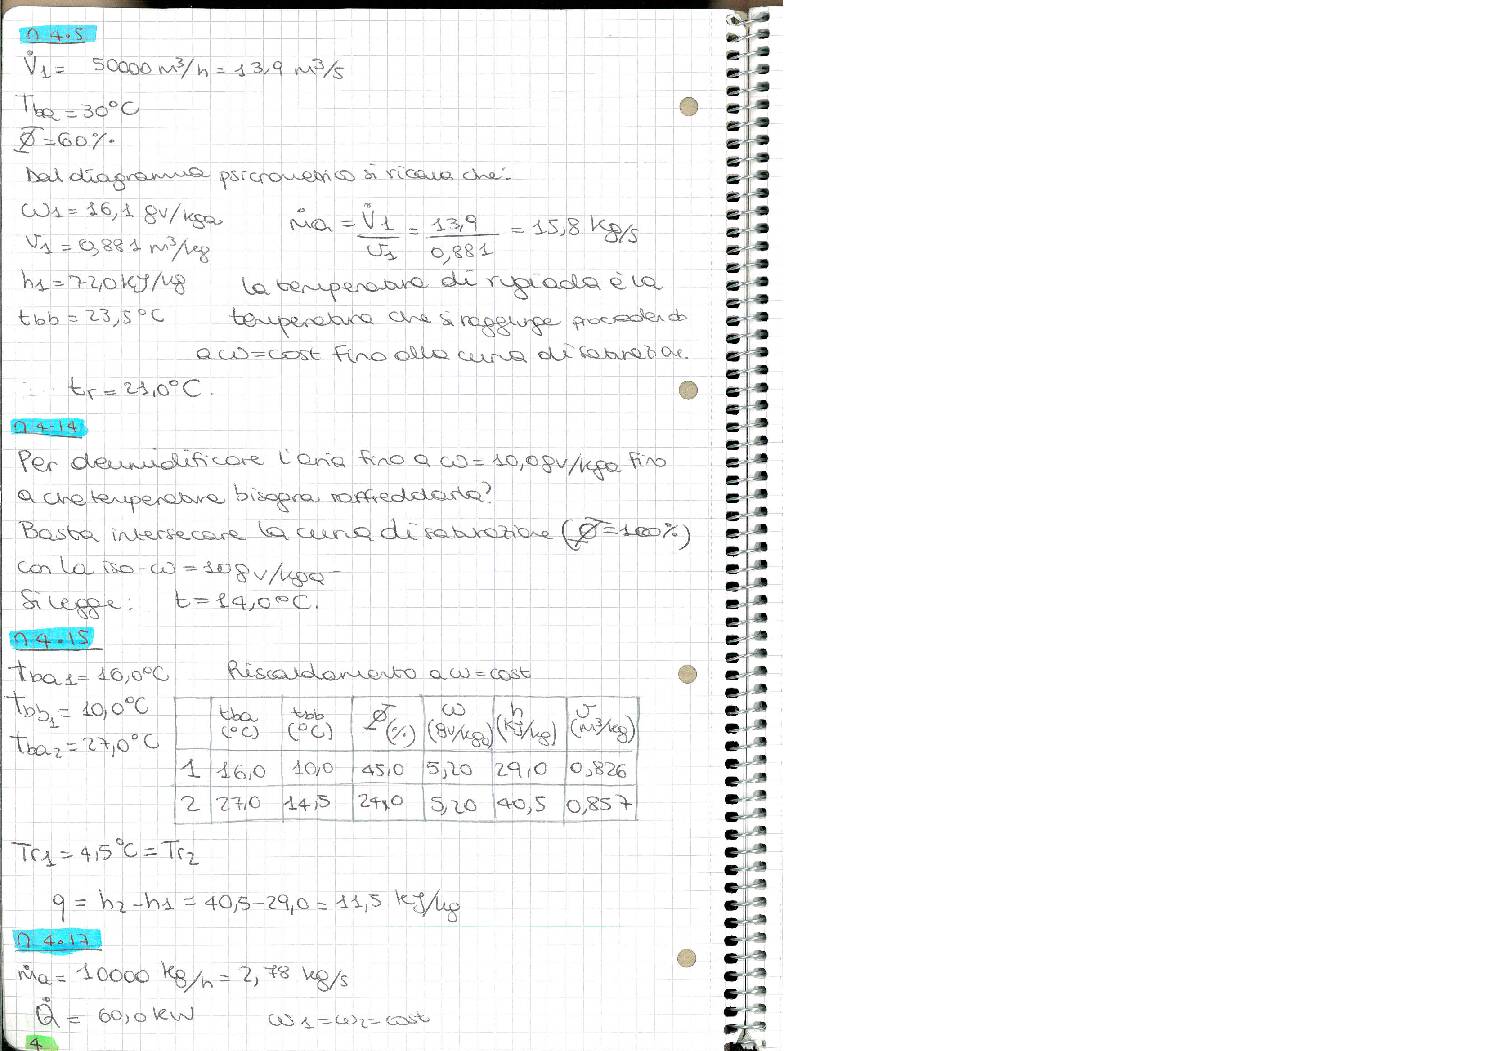 n 4.5
V̇1 = 50000 m³/h = 13,9 m³/s
Tba = 30°C
Φ = 60%.
Dal diagramma psicrometrico si ricava che:
ω1 = 16,1 gv/kga
v1 = 0,881 m³/kg
ṁa = V̇1/v1 = 13,9/0,881 = 15,8 kg/s
h1 = 72,0 kJ/kg
tbb = 23,5°C
la temperatura di rugiada è la
temperatura che si raggiunge procedendo
a ω=cost fino alla curva di saturazione.
tr = 21,0°C.
n 4.14
Per deumidificare l'aria fino a ω = 10,0 gv/kga fino
a che temperatura bisogna raffreddarla?
Basta intersecare la curva di saturazione (Φ=100%)
con la iso-ω = 10 gv/kga
Si legge: t = 14,0°C.
n 4.15
tba1 = 16,0°C Riscaldamento a ω=cost
Tbb1 = 10,0°C
Tba2 = 27,0°C
tba (°C) tbb (°C) Φ (%) ω (gv/kga) h (kJ/kg) v (m³/kg)
1 16,0 10,0 45,0 5,20 29,0 0,826
2 27,0 14,5 24,0 5,20 40,5 0,857
Tr1 = 4,5°C = Tr2
q = h2 - h1 = 40,5 - 29,0 = 11,5 kJ/kg
n 4.17
ṁa = 10000 kg/h = 2,78 kg/s
Q̇ = 60,0 kW ω1 = ω2 = cost
4